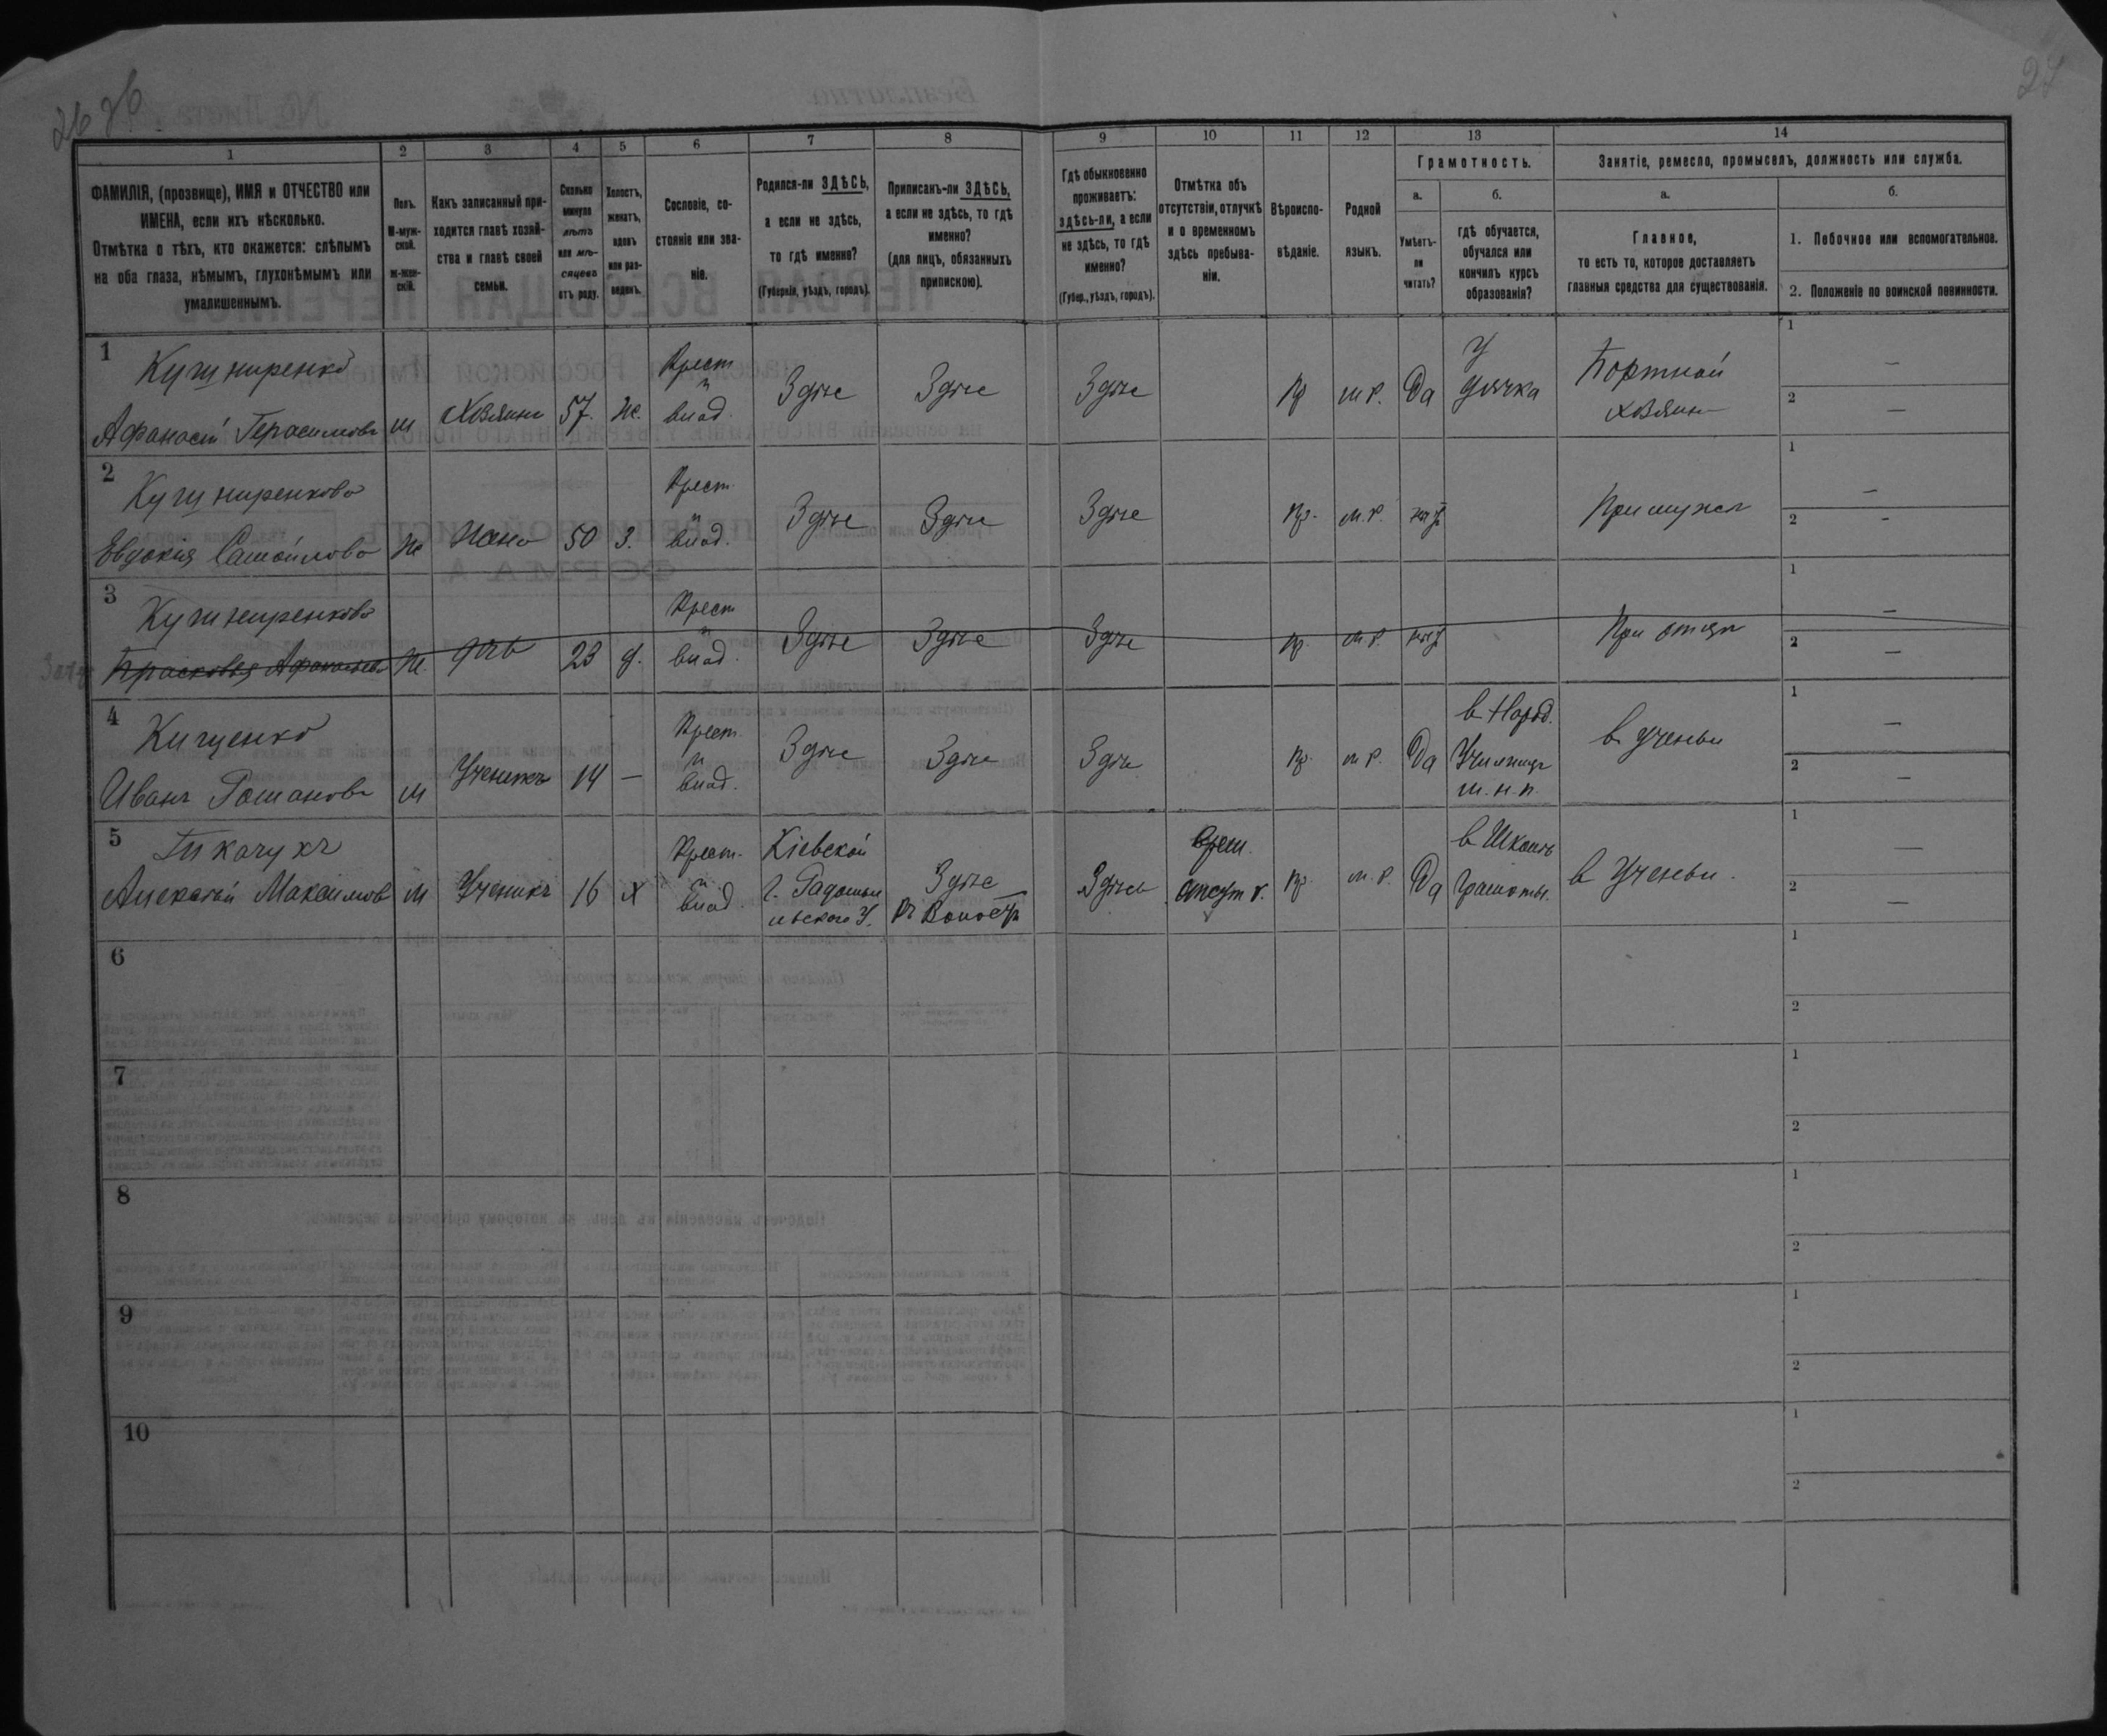 26 26
27
1 2 3 4 5 6 7 8 9 10 11 12 13 14
ФАМИЛІЯ, (прозвище), ИМЯ и ОТЧЕСТВО или
ИМЕНА, если ихъ нѣсколько.
Отмѣтка о тѣхъ, кто окажется: слѣпымъ
на оба глаза, нѣмымъ, глухонѣмымъ или
умалишеннымъ.
Полъ.
М-муж-
ской.
ж-жен-
скій.
Какъ записанный при-
ходится главѣ хозяй-
ства и главѣ своей
семьи.
Сколько
минуло
лѣтъ
или мѣ-
сяцевъ
отъ роду.
Холостъ,
женатъ,
вдовъ
или раз-
веденъ.
Сословіе, со-
стояніе или зва-
ніе.
Родился-ли ЗДѢСЬ,
а если не здѣсь,
то гдѣ именно?
(Губернія, уѣздъ, городъ).
Приписанъ-ли ЗДѢСЬ,
а если не здѣсь, то гдѣ
именно?
(для лицъ, обязанныхъ
припискою).
Гдѣ обыкновенно
проживаетъ:
здѣсь-ли, а если
не здѣсь, то гдѣ
именно?
(Губер., уѣздъ, городъ).
Отмѣтка объ
отсутствіи, отлучкѣ
и о временномъ
здѣсь пребыва-
ніи.
Вѣроиспо-
вѣданіе.
Родной
языкъ.
Грамотность.
а.
Умѣетъ-
ли
читать?
б.
гдѣ обучается,
обучался или
кончилъ курсъ
образованія?
Занятіе, ремесло, промыселъ, должность или служба.
а.
Главное,
то есть то, которое доставляетъ
главныя средства для существованія.
б.
1. Побочное или вспомогательное.
2. Положеніе по воинской повинности.
1
Кушниренко
Афанасій Герасимовъ
м Хозяинъ 57. же. Крест. влад. Здѣсь Здѣсь Здѣсь пр м.р. Да У дьячка Портной хозяинъ 1 — 2 —
2
Кушниренкова
Евдокия Самойлова
же Жена 50 З. Крест. влад. Здѣсь Здѣсь Здѣсь пр. м.р. нѣт При мужѣ 1 — 2 -
3
Кушниренкова
Прасковья Афанасьева
же. дчь 23 д. Крест. влад. Здѣсь Здѣсь Здѣсь пр. м.р. нѣт При отцѣ 1 — 2 —
4
Иванъ Романовъ
м Ученикъ 14 — Крест. влад. Здѣсь Здѣсь Здѣсь пр. м.р. Да в Народ. Училищѣ м.н.п. в ученьи 1 — 2 —
5
Ткачукъ
Алексѣй Максимов
м Ученикъ 16 х Крест. влад. Кіевской г. Радомы льскаго У. Здѣсь въ Волости Здѣсь врем. отсут. пр. м.р. Да в Школѣ грамоты. в Ученьи. 1 — 2 —
6 1
2
7 1
2
8 1
2
9 1
2
10 1
2